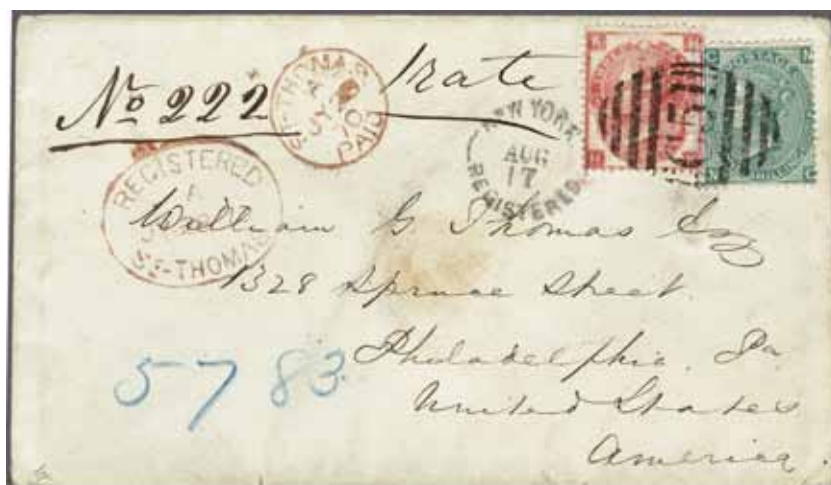 No 222
1 rate
ST-THOMAS
A
JY
70
PAID
NEW YORK
AUG
17
REGISTERED
C51
REGISTERED
A
ST-THOMAS
William G Thomas Esq
1328 Spruce Street.
Philadelphia. Pa
United States
America.
57 83